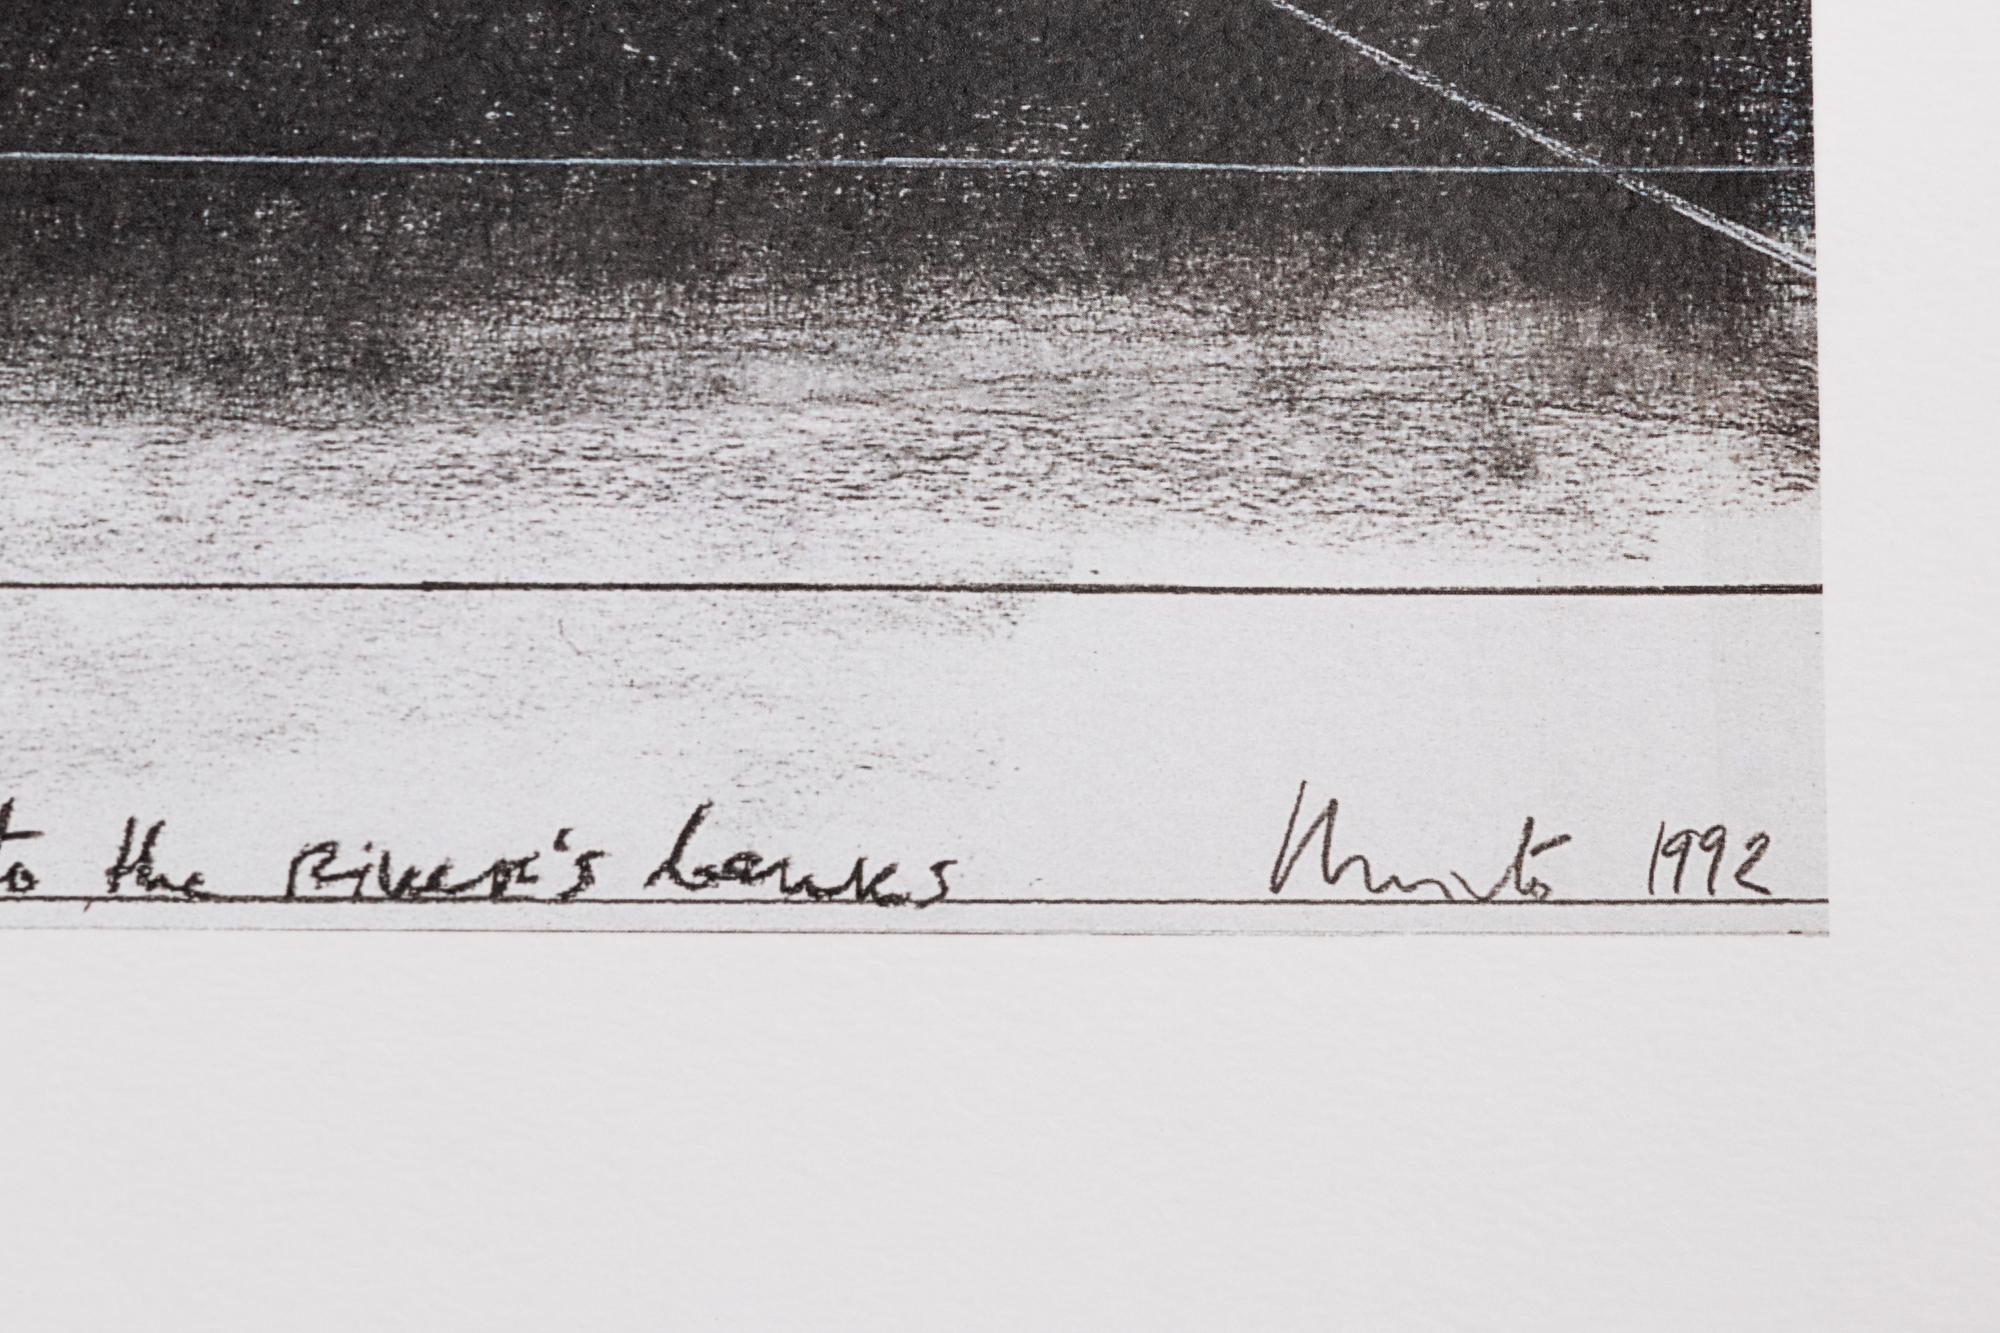 to the River's banks Christo 1992